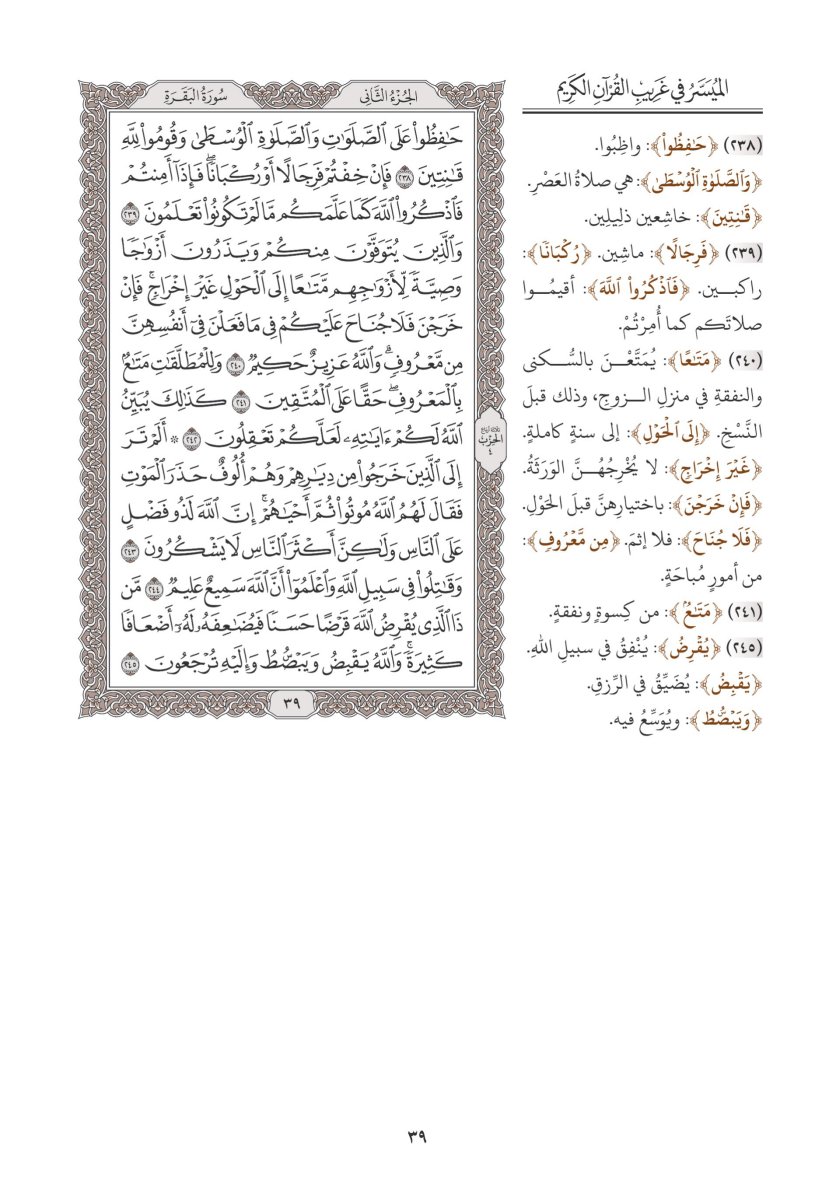 الميُسَّرُ في غَرِيبِ القُرْآنِ الكَرِيم
(٢٣٨) ﴿حَٰفِظُواْ﴾: واظِبُوا.
﴿وَٱلصَّلَوٰةِ ٱلۡوُسۡطَىٰ﴾: هي صلاةُ العَصْرِ.
﴿قَٰنِتِينَ﴾: خاشِعين ذلِيلِين.
(٢٣٩) ﴿فَرِجَالًا﴾: ماشِين. ﴿رُكۡبَانٗا﴾:
راكبـــين. ﴿فَٱذۡكُرُواْ ٱللَّهَ﴾: أقيمُـــوا
صلاتَكم كما أُمِرْتُمْ.
(٢٤٠) ﴿مَتَٰعًا﴾: يُمَتَّعْــنَ بالسُّــكنى
والنفقةِ في منزلِ الـــزوجِ، وذلك قبلَ
النَّسْخِ. ﴿إِلَى ٱلۡحَوۡلِ﴾: إلى سنةٍ كاملةٍ.
﴿غَيۡرَ إِخۡرَاجٖ﴾: لا يُخْرِجُهُــنَّ الوَرَثَةُ.
﴿فَإِنۡ خَرَجۡنَ﴾: باختيارِهنَّ قبلَ الحَوْلِ.
﴿فَلَا جُنَاحَ﴾: فلا إثمَ. ﴿مِن مَّعۡرُوفٖ﴾:
من أمورٍ مُباحَةٍ.
(٢٤١) ﴿مَتَٰعُۢ﴾: من كِسوةٍ ونفقةٍ.
(٢٤٥) ﴿يُقۡرِضُ﴾: يُنْفِقُ في سبيلِ اللهِ.
﴿يَقۡبِضُ﴾: يُضَيِّقُ في الرِّزقِ.
﴿وَيَبۡصُۜطُ﴾: ويُوَسِّعُ فيه.
الجُزْءُ الثَّانِي
سُورَةُ البَقَرَةِ
حَٰفِظُواْ عَلَى ٱلصَّلَوَٰتِ وَٱلصَّلَوٰةِ ٱلۡوُسۡطَىٰ وَقُومُواْ لِلَّهِ
قَٰنِتِينَ ٢٣٨ فَإِنۡ خِفۡتُمۡ فَرِجَالًا أَوۡ رُكۡبَانٗاۖ فَإِذَآ أَمِنتُمۡ
فَٱذۡكُرُواْ ٱللَّهَ كَمَا عَلَّمَكُم مَّا لَمۡ تَكُونُواْ تَعۡلَمُونَ ٢٣٩
وَٱلَّذِينَ يُتَوَفَّوۡنَ مِنكُمۡ وَيَذَرُونَ أَزۡوَٰجٗا
وَصِيَّةٗ لِّأَزۡوَٰجِهِم مَّتَٰعًا إِلَى ٱلۡحَوۡلِ غَيۡرَ إِخۡرَاجٖۚ فَإِنۡ
خَرَجۡنَ فَلَا جُنَاحَ عَلَيۡكُمۡ فِي مَا فَعَلۡنَ فِيٓ أَنفُسِهِنَّ
مِن مَّعۡرُوفٖۗ وَٱللَّهُ عَزِيزٌ حَكِيمٞ ٢٤٠ وَلِلۡمُطَلَّقَٰتِ مَتَٰعُۢ
بِٱلۡمَعۡرُوفِۖ حَقًّا عَلَى ٱلۡمُتَّقِينَ ٢٤١ كَذَٰلِكَ يُبَيِّنُ
ٱللَّهُ لَكُمۡ ءَايَٰتِهِۦ لَعَلَّكُمۡ تَعۡقِلُونَ ٢٤٢ ۞ أَلَمۡ تَرَ
إِلَى ٱلَّذِينَ خَرَجُواْ مِن دِيَٰرِهِمۡ وَهُمۡ أُلُوفٌ حَذَرَ ٱلۡمَوۡتِ
فَقَالَ لَهُمُ ٱللَّهُ مُوتُواْ ثُمَّ أَحۡيَٰهُمۡۚ إِنَّ ٱللَّهَ لَذُو فَضۡلٍ
عَلَى ٱلنَّاسِ وَلَٰكِنَّ أَكۡثَرَ ٱلنَّاسِ لَا يَشۡكُرُونَ ٢٤٣
وَقَٰتِلُواْ فِي سَبِيلِ ٱللَّهِ وَٱعۡلَمُوٓاْ أَنَّ ٱللَّهَ سَمِيعٌ عَلِيمٞ ٢٤٤ مَّن
ذَا ٱلَّذِي يُقۡرِضُ ٱللَّهَ قَرۡضًا حَسَنٗا فَيُضَٰعِفَهُۥ لَهُۥٓ أَضۡعَافٗا
كَثِيرَةٗۚ وَٱللَّهُ يَقۡبِضُ وَيَبۡصُۜطُ وَإِلَيۡهِ تُرۡجَعُونَ ٢٤٥
ثلاثة أرباع
الحِزْب
٤
٣٩
٣٩